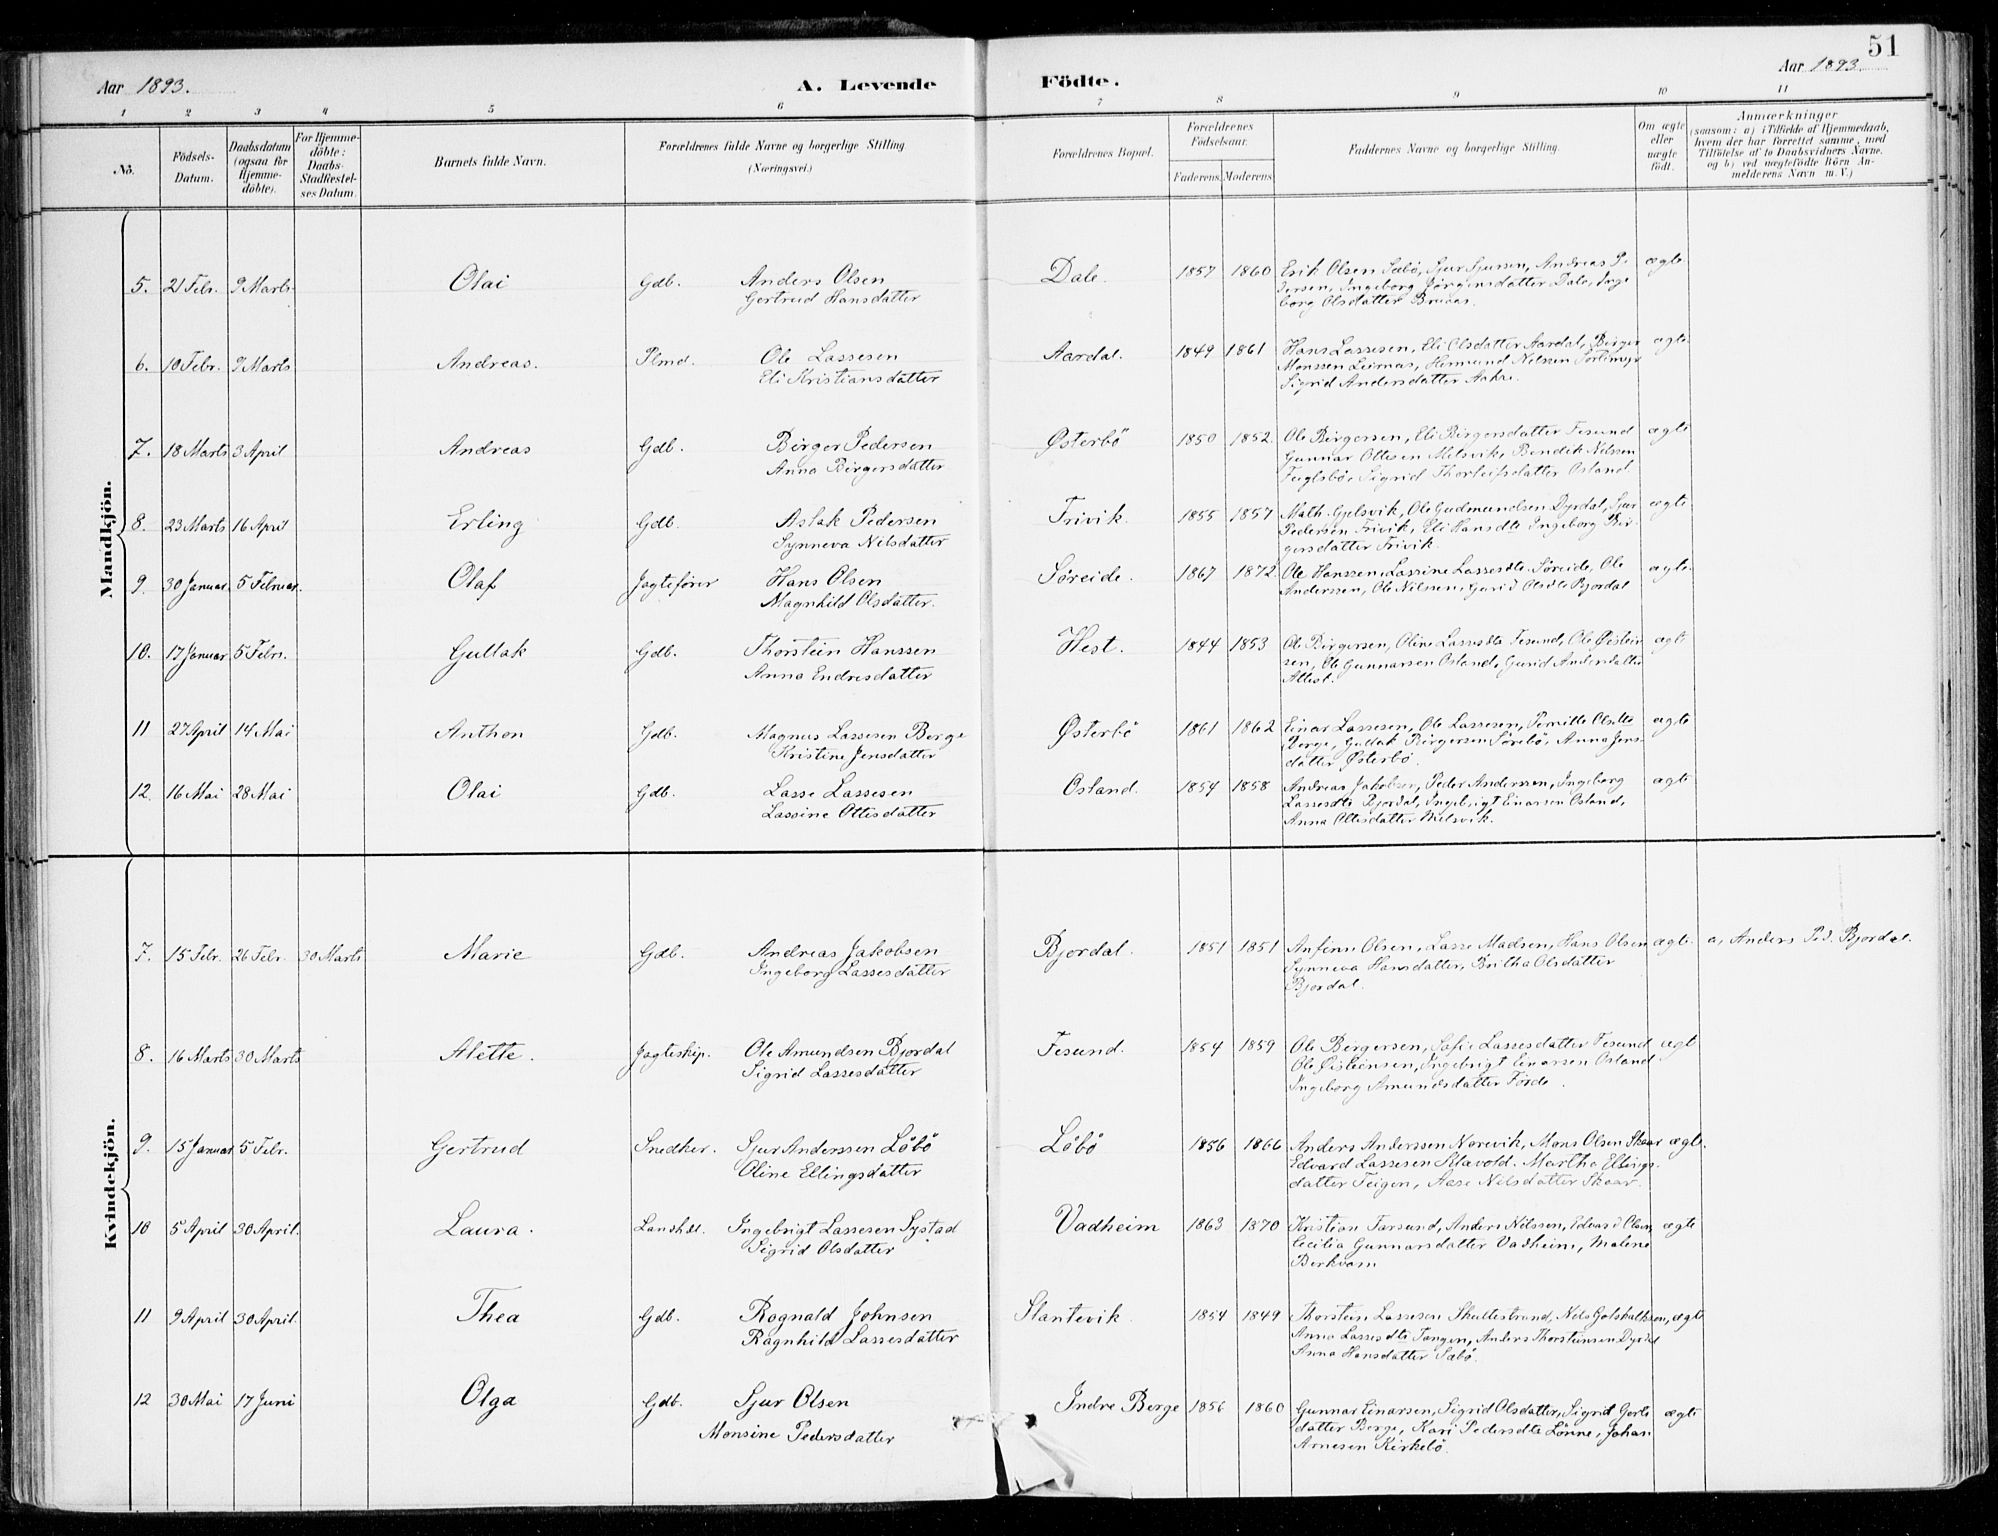 51
Aar 1893. A. Levende Födte. Aar 1893.
1 2 3 4 5 6 7 8 9 10 11
No. Födsels-Datum. Daabsdatum (ogsaa for Hjemme-döbte). For Hjemme-döbte: Daabs-Stadfæstel-ses Datum. Barnets fulde Navn. Forældrenes fulde Navne og borgerlige Stilling (Næringsvei.) Forældrenes Bopæl. Forældrenes Födselsaar. Faderens. Moderens. Faddernes Navne og borgerlige Stilling. Om ægte eller uægte födt. Anmærkninger (saasom: a) i Tilfælde af Hjemmedaab, hvem der har forrettet samme, med Tilföielse af to Daabsvidners Navne, og b) ved uægtefödte Börn An-melderens Navn m. V.)
Mandkjön.
5. 21 Febr. 9 Marts Olai Gdb. Anders Olsen Dale. 1857 1860 Erik Olsen Sæbö, Sjur Sjursen, Andreas P. ægte
Gertrud Hansdatter dersen, Ingeborg Jörgensdatter Dale, Inge
borg Olsdatter
6. 10 Febr. 9 Marts Andreas. Plmd. Ole Lassesen Aardal. 1849 1861 Hans Lassesen, Eli Olsdatter Aardal, Birger ægte
Eli Kristiansdatter Monssen Hermund Nilssen
Sigrid Andersdatter
7. 18 Marts 3 April Andreas Gdb. Birger Pedersen Østerbö 1850 1852 Ole Birgersen, Eli Birgersdatter Tesund ægte
Anna Birgersdatter Gunnar Ottesen Melsvik, Bendik Nilssen
Fuglsbö, Sigrid Thorleifsdatter Osland
8. 23 Marts 16 April Erling Gdb. Aslak Pedersen Trivik. 1855 1857 Math. Gjelsvik, Ole Gudmundsen Dyrdal, Sjur ægte
Synneva Nilsdatter Pedersen Trivik, Eli Hansdtr Ingeborg Bir-
gersdatter Trivik.
9. 30 Januar. 5 Februar. Olaf Jagtefører Hans Olsen Söreide. 1867 1872 Ole Hanssen, Lassine Lassesdtr Söreide, Ole ægte
Magnhild Olsdatter. Anderssen, Ole Nilssen, Gurid Olsdtr Bjordal
10. 17 Januar 5 Febr. Gullak Gdb. Thorstein Hanssen Hest. 1844 1853 Ole Birgersen, Oline Tesund, Ole Øistein ægte
Anna Endresdatter sen, Ole Gunnarsen Osland, Gurid Andersdatter
11 27 April 14 Mai Anthon Gdb. Magnus Lassesen Berge Østerbö 1861 1862 Einar Lassesen, Ole Lassesen, Pernille ægte
Kristine Jensdatter Berge, Gullak Birgersen Sörebö, Anna Jens-
datter Østerbö
12. 16 Mai 28 Mai Olai Gdb. Lasse Lassesen Osland. 1854 1858 Andreas Jakobsen, Peder Anderssen, Ingeborg ægte
Lassine Ottesdatter Lassesdtr Bjordal, Ingebrigt Einarsen Osland,
Anna Ottesdatter Melsvik.
Kvindekjön.
7. 15 Febr. 26 Febr. 30 Marts Marie Gdb. Andreas Jakobsen Bjordal. 1851 1851 Anfinn Olsen, Lasse Madsen, Hans Olsen ægte. a, Anders Ped. Bjordal.
Ingeborg Lassesdatter Synneva Hansdatter, Britha Olsdatter
Bjordal.
8. 16 Marts 30 Marts Alette. Jagteskip. Ole Amundsen Bjordal Tesund. 1854 1859 Ole Bergersen, Sofie Lassesdatter Tesund ægt
Sigrid Lassesdatter Ole Øisteinsen, Ingebrigt Einarsen Osland
Ingeborg Amundsdatter Förde.
9. 15 Januar 5 Febr. Gertrud Snedker. Sjur Anderssen Löbö Löbö 1856 1866 Anders Anderssen Norevik, Mons Olsen Skaar ægte.
Oline Ellingsdatter Edvard Lassesen Klævold. Martha Ellings
datter Feigen, Aase Nilsdatter Skaar.
10 5 April 30 April. Laura. Lanshdl. Ingebrigt Lassesen Systad Vadheim 1863 1870 Kristian Farsund, Anders Nilssen, Edvard Olsen ægte
Sigrid Olsdatter Cecilia Gunnarsdatter Vadheim, Malene
Berkvam
11 9 April 30 April. Thea Gdb. Rognald Johnsen Slantevik. 1854 1849 Thorstein Lassesen Nils ægte
Ragnhild Lassesdatter Anna Lassesdtr Tangen, Anders Thorsteinsen Dyrdal
Anna Hansdatter Sæbö.
12 30 Mai 17 Juni Olga Gdb. Sjur Olsen Indre Berge 1856 1860 Gunnar Einarsen, Sigrid Olsdatter, Sigrid ægte
Monsine Pedersdatter datter Berge, Kari Pedersdtr Lönne, Johan
Arnesen Kirkebö.